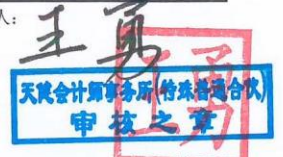 人:
王勇
天陕会计师事务所(特殊普通合伙)
审核之章
王勇